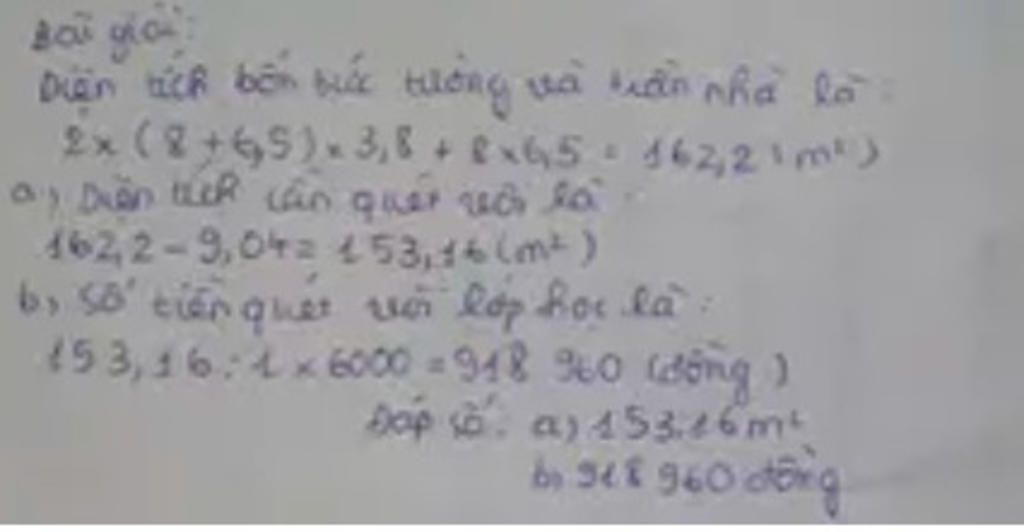 Bài giải:
Diện tích bốn bức tường và trần nhà là:
2 x (8 + 6,5) x 3,8 + 8 x 6,5 = 162,2 (m²)
a) Diện tích cần quét vôi là:
162,2 - 9,04 = 153,16 (m²)
b) Số tiền quét vôi lớp học là:
153,16 : 1 x 6000 = 918 960 (đồng)
Đáp số: a) 153.16m²
b) 918 960 đồng